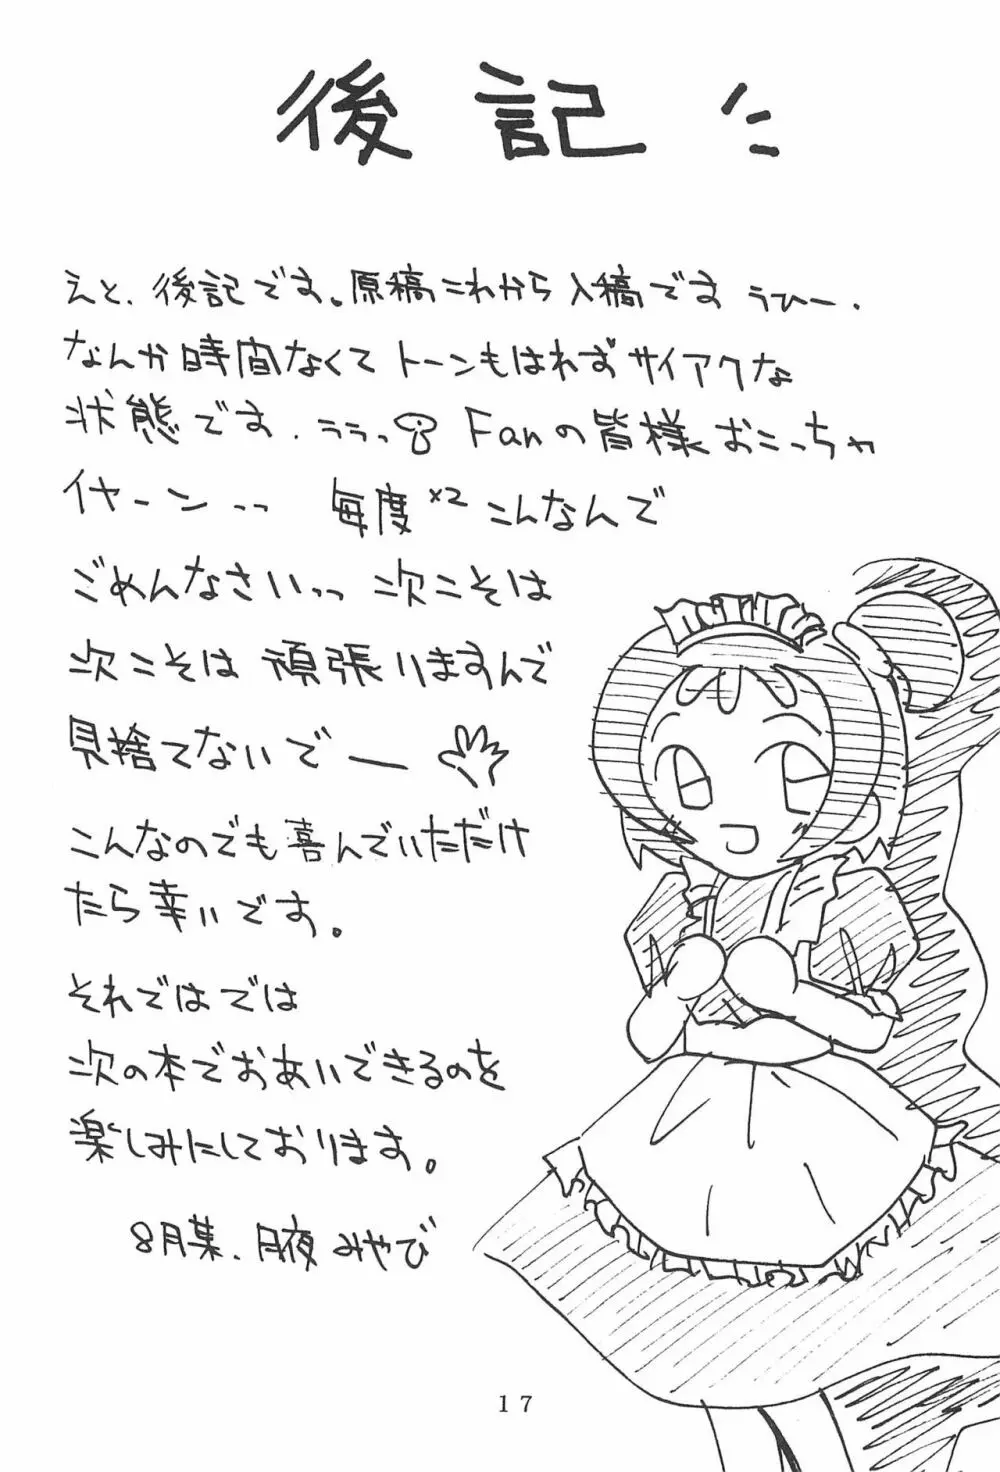 後記
えと、後記です。原稿これから入稿です うひー.
なんか時間なくてトーンもはれずサイアクな
状態です. ううっ Fanの皆様おこっちゃ
イヤーンっっ 毎度×2こんなんで
ごめんなさいっっ 次こそは
次こそは 頑張りますんで
見捨てないでー
こんなのでも喜んでいただけ
たら幸いです。
それではでは
次の本でおあいできるのを
楽しみにしております。
8月某.月夜みやび
17